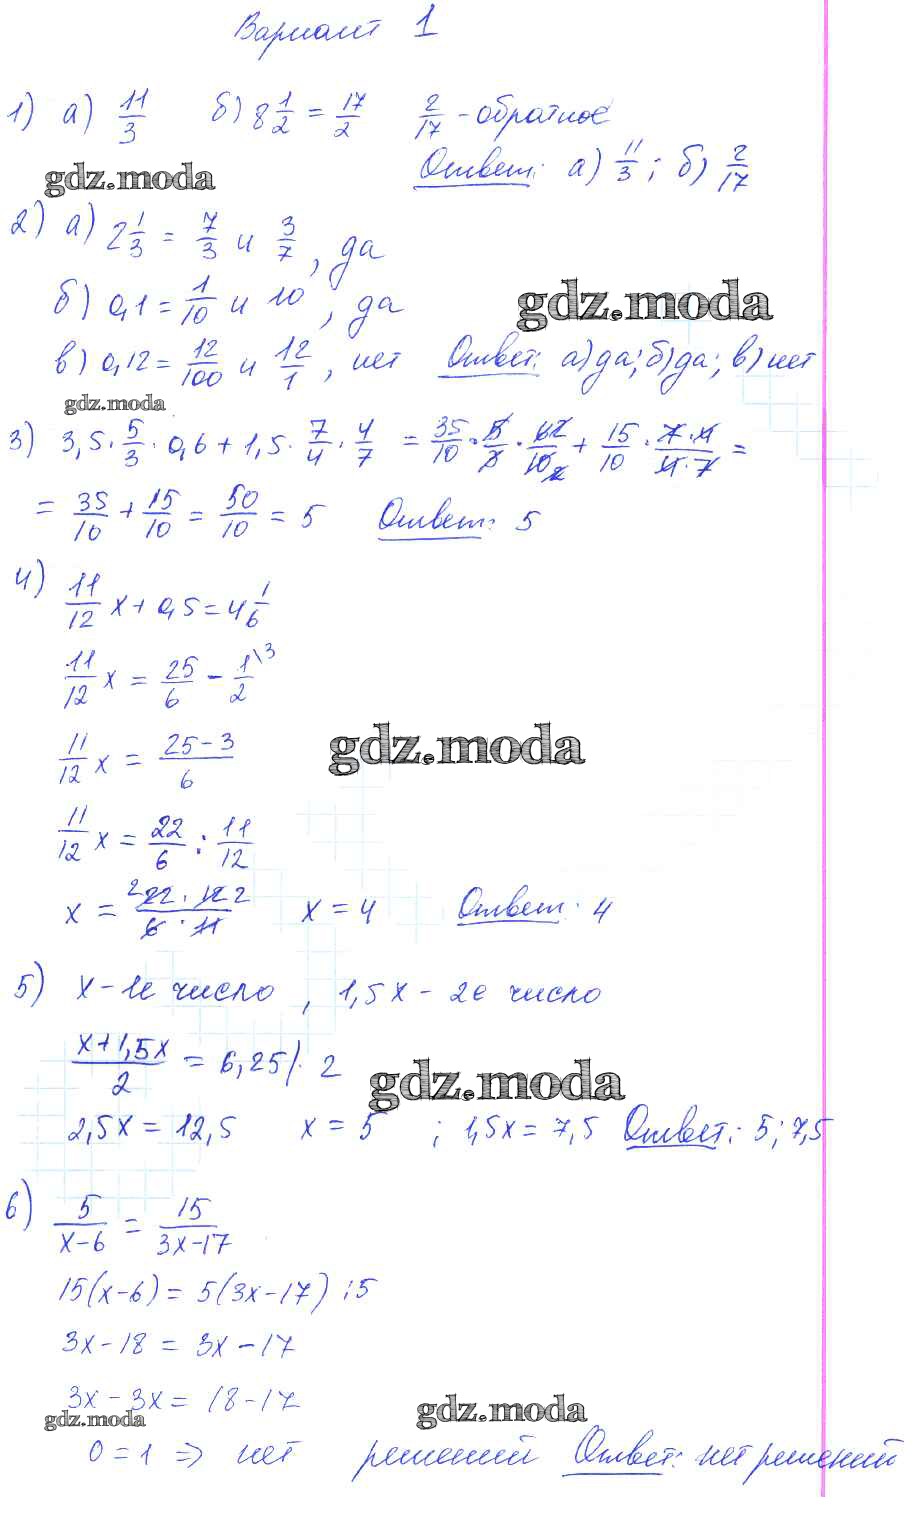 Вариант 1
1) а) 11/3 б) 8 1/2 = 17/2 2/17 - обратное
Ответ: а) 11/3; б) 2/17
gdz.moda
2) а) 2 1/3 = 7/3 и 3/7, да
б) 0,1 = 1/10 и 10, да
gdz.moda
в) 0,12 = 12/100 и 12/1, нет Ответ: а) да; б) да; в) нет
gdz.moda
3) 3,5 · 5/3 · 0,6 + 1,5 · 7/4 · 4/7 = 35/10 · 5/3 · 6/10 + 15/10 · 7·4/4·7 =
= 35/10 + 15/10 = 50/10 = 5 Ответ: 5
4) 11/12 x + 0,5 = 4 1/6
11/12 x = 25/6 - 1/2 \3
11/12 x = 25-3/6
gdz.moda
11/12 x = 22/6 : 11/12
x = 2 22 · 12 2/6 · 11 x = 4 Ответ: 4
5) x - 1е число, 1,5x - 2е число
x+1,5x/2 = 6,25 |· 2
gdz.moda
2,5x = 12,5 x = 5 ; 1,5x = 7,5 Ответ: 5; 7,5
6) 5/x-6 = 15/3x-17
15(x-6) = 5(3x-17) :5
3x-18 = 3x-17
3x-3x = 18-17
gdz.moda
gdz.moda
0=1 => нет решений Ответ: нет решений